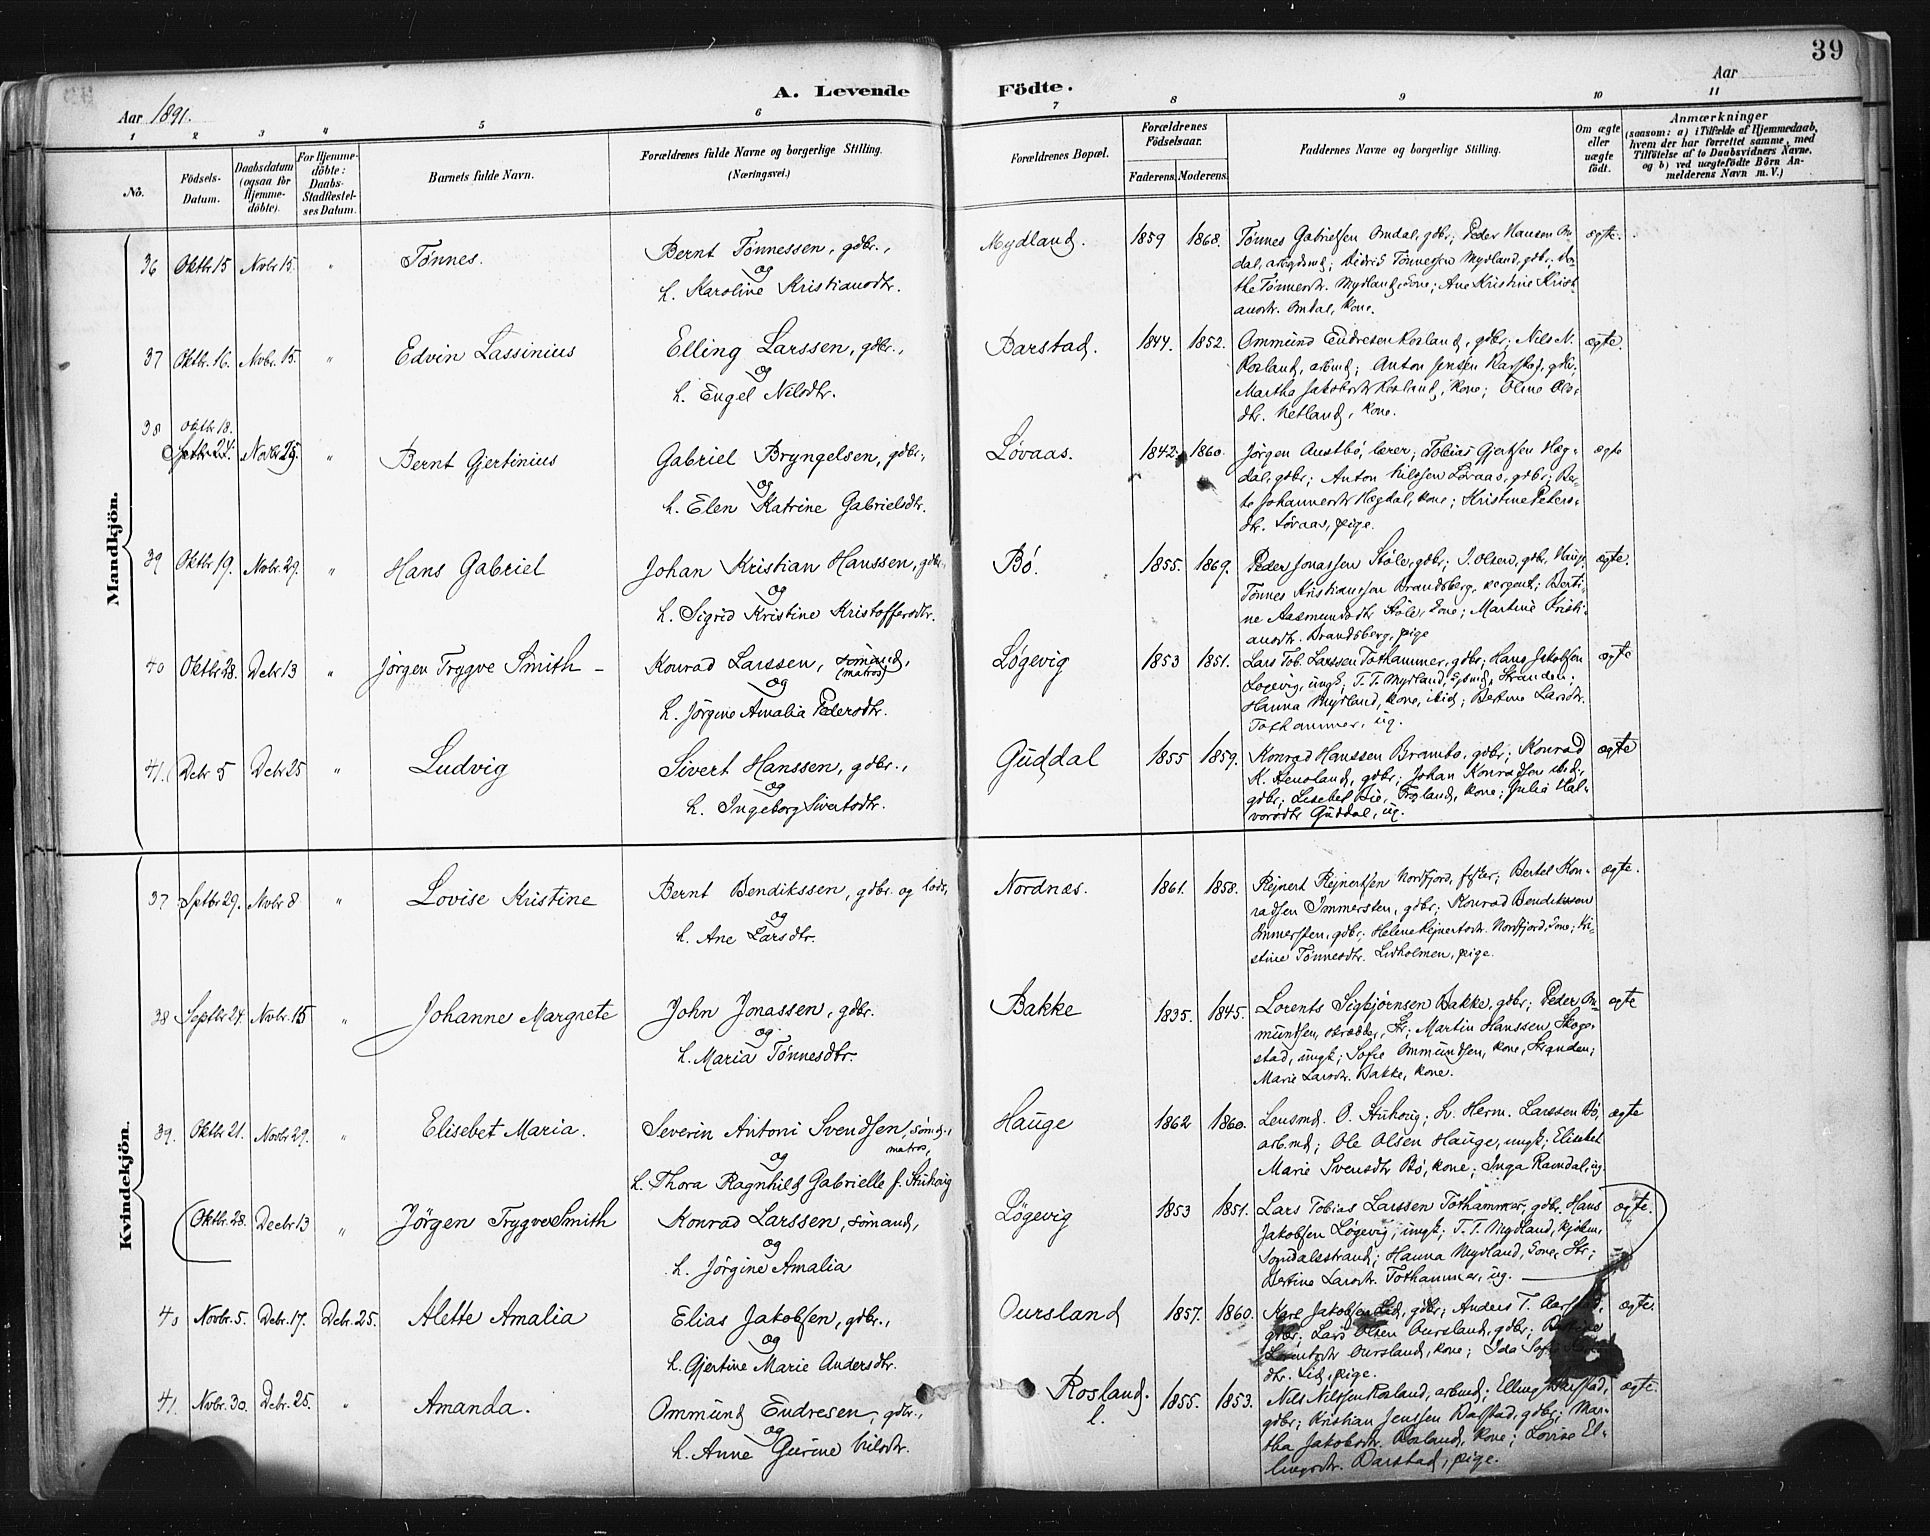 39
A. Levende Födte.
Aar 1891.
Aar
1 2 3 4 5 6 7 8 9 10 11
No.
Födsels-
Datum.
Daabsdatum
(ogsaa for
Hjemme-
döbte).
For Hjemme-
döbte:
Daabs-
Stadfæstel-
ses Datum.
Barnets fulde Navn.
Forældrenes fulde Navne og borgerlige Stilling.
(Næringsvei.)
Forældrenes Bopæl.
Forældrenes
Födselsaar.
Faderens. Moderens.
Faddernes Navne og borgerlige Stilling.
Om ægte
eller
uægte
født.
Anmærkninger
(saasom: a) i Tilfælde af Hjemmedaab,
hvem der har forrettet samme, med
Tilföielse af to Daabsvidners Navne,
og b) ved uægtefödte Börn An-
melderens Navn m. V.)
Mandkjön.
36 Oktbr 15 Nvbr 15. " Tønnes. Bernt Tønnessen, gdbr.,
og
h. Karoline Kristiansdtr.
Mydland. 1859 1868. Tønnes Gabrielsen Omdal, gdbr; Peder Hansen Om ægte.
dal, ; Didrik Tønnesen Mydland, gdbr;
the Tønnesdtr. Mydland, kone; Ane Kristine Kristi
ansdtr. Omdal, kone.
37 Oktbr. 16. Nvbr. 15. " Edvin Lassinius Elling Larssen, gdbr.,
og
h. Engel Nilsdtr.
Barstad. 1844. 1852. Ommund Endresen Rosland, gdbr; Nils N. ægte.
Rosland, arbmd; Anton Jensen Barstad, gdbr,
Martha Jakobsdtr Rosland, kone; Oline Ols-
dtr. Netland, kone.
38 Oktbr 18.
Septbr 24. Novbr 25. " Bernt Gjertinius Gabriel Bryngelsen, gdbr.
og
h. Elen Katrine Gabrielsdtr.
Løvaas. 1842. 1860. Jörgen Austbö, lærer; Tobias Gjertsen Hæg- ægte
dal, gdbr; Anton Nilssen Løvaas, gdbr; Ber-
te Johannesdtr Hægdal, kone; Kristine Peters-
dtr. Løvaas, pige.
39 Oktbr 19. Nvbr. 29. " Hans Gabriel Johan Kristian Hanssen, gdbr.,
og
h. Sigrid Kristine Kristoffersdtr.
Bö. 1855. 1869. Peder Jonassen Støle, gdbr; J. Olsen, gdbr, Hauge, ægte.
Tønnes Kristianssen Brandsberg, sergent; Berti-
ne Aasmundsdtr Støle, kone; Martine Kristi-
ansdtr. Brandsberg, pige
40 Oktbr 28. Debr 13 " Jörgen Trygve Smith – Konrad Larssen, sömand,
(matros)
og
h. Jörgine Amalia Pedersdtr.
Løgevig 1853 1851. Lars Tob. Larssen Tothammer, gdbr; Hans Jakobsen ægte
Løgevig, ungk; T. T. Mydland, , Stranden;
Hanna Mydland, kone, ibid; Bertine Larsdtr.
Tothammer, ug.
41. Debr 5 Debr 25 " Ludvig Sivert Hanssen, gdbr.,
og
h. Ingeborg Sivertsdtr.
Guddal 1855 1859. Konrad Hanssen Brambo, gdbr; Konrad ægte
K. Stensland, gdbr; Johan Konradsen ibid.,
gdbr; Lisebet Bie, Frøland, kone; Julia Hal-
vorsdtr Guddal, ug.
Kvindekjön.
37 Septbr 29. Nvbr 8 " Lovise Kristine Bernt Bendikssen, gdbr. og lods,
og
h. Ane Larsdtr.
Nordnæs. 1861. 1858. Rejnert Rejnertsen Nordfjord, ; Bertel Kon- ægte.
radsen Immersten, gdbr; Konrad Bendikssen
Immersten, gdbr; Helene Rejnertsdtr. Nordfjord, kone; Kri-
stine Tønnesdtr. Lidholmen, pige.
38 Septbr 24. Nvbr. 15 " Johanne Margrete John Jonassen, gdbr.
og
h. Maria Tønnesdtr.
Bakke 1835. 1845. Lorents Sigbjørnsen Bakke, gdbr; Peder Om- ægte
mundsen, skrædder, Str; Martin Hanssen Skoge-
stad, ungk; Sofie Ommundsen, kone, Stranden;
Marie Larsdtr. Bakke, kone.
39. Oktbr 21. Novbr 29. " Elisebet Maria. Severin Antoni Svendsen, sömd.,
matros,
og
h. Thora Ragnhild Gabrielle f. Stuhoug
Hauge 1862 1860. Lensmd. O. Stuhoug; L. Herm. Larssen Bö, ægte
arb.md; Ole Olsen Hauge, ungk; Elisebet
Marie Svensdtr Bö, kone; Inga Ramdal, ug.
Oktbr. 28. Decbr 13 " Jörgen Trygve Smith Konrad Larssen, sömand,
og
h. Jörgine Amalia
Løgevig 1853 1851. Lars Tobias Larssen Tothammer, gdbr. Hans ægte.
Jakobsen Løgevig, ungk; T. T. Mydland, kjöbm,
Sogndalsstrand; Hanna Mydland, kone, Str;
Bertine Larsdtr. Tothammer, ug.
40 Novbr. 5. Debr. 17. Debr. 25. Alette Amalia Elias Jakobsen, gdbr.,
og
h. Gjertine Marie Andersdtr.
Oursland 1857. 1860. Karl Jakobsen Lid, gdbr; Anders T. Aarstad, ægte.
gdbr; Lars Olsen Oursland, gdbr;
Lorentsdtr Oursland, kone; Ida Sofie
dtr. Lid, pige.
41. Nvbr. 30. Debr. 25. " Amanda. Ommund Endresen, gdbr.,
og
h. Anne Gurine Nilsdtr.
Rosland.
l. 1855. 1853. Nils Nilssen Rosland, arbmd; Elling Barstad, ægte.
gdbr; Kristian Jenssen Barstad, gdbr; Mar-
tha Jakobsdtr. Rosland, kone; Lovise El-
lingsdtr. Barstad, pige.